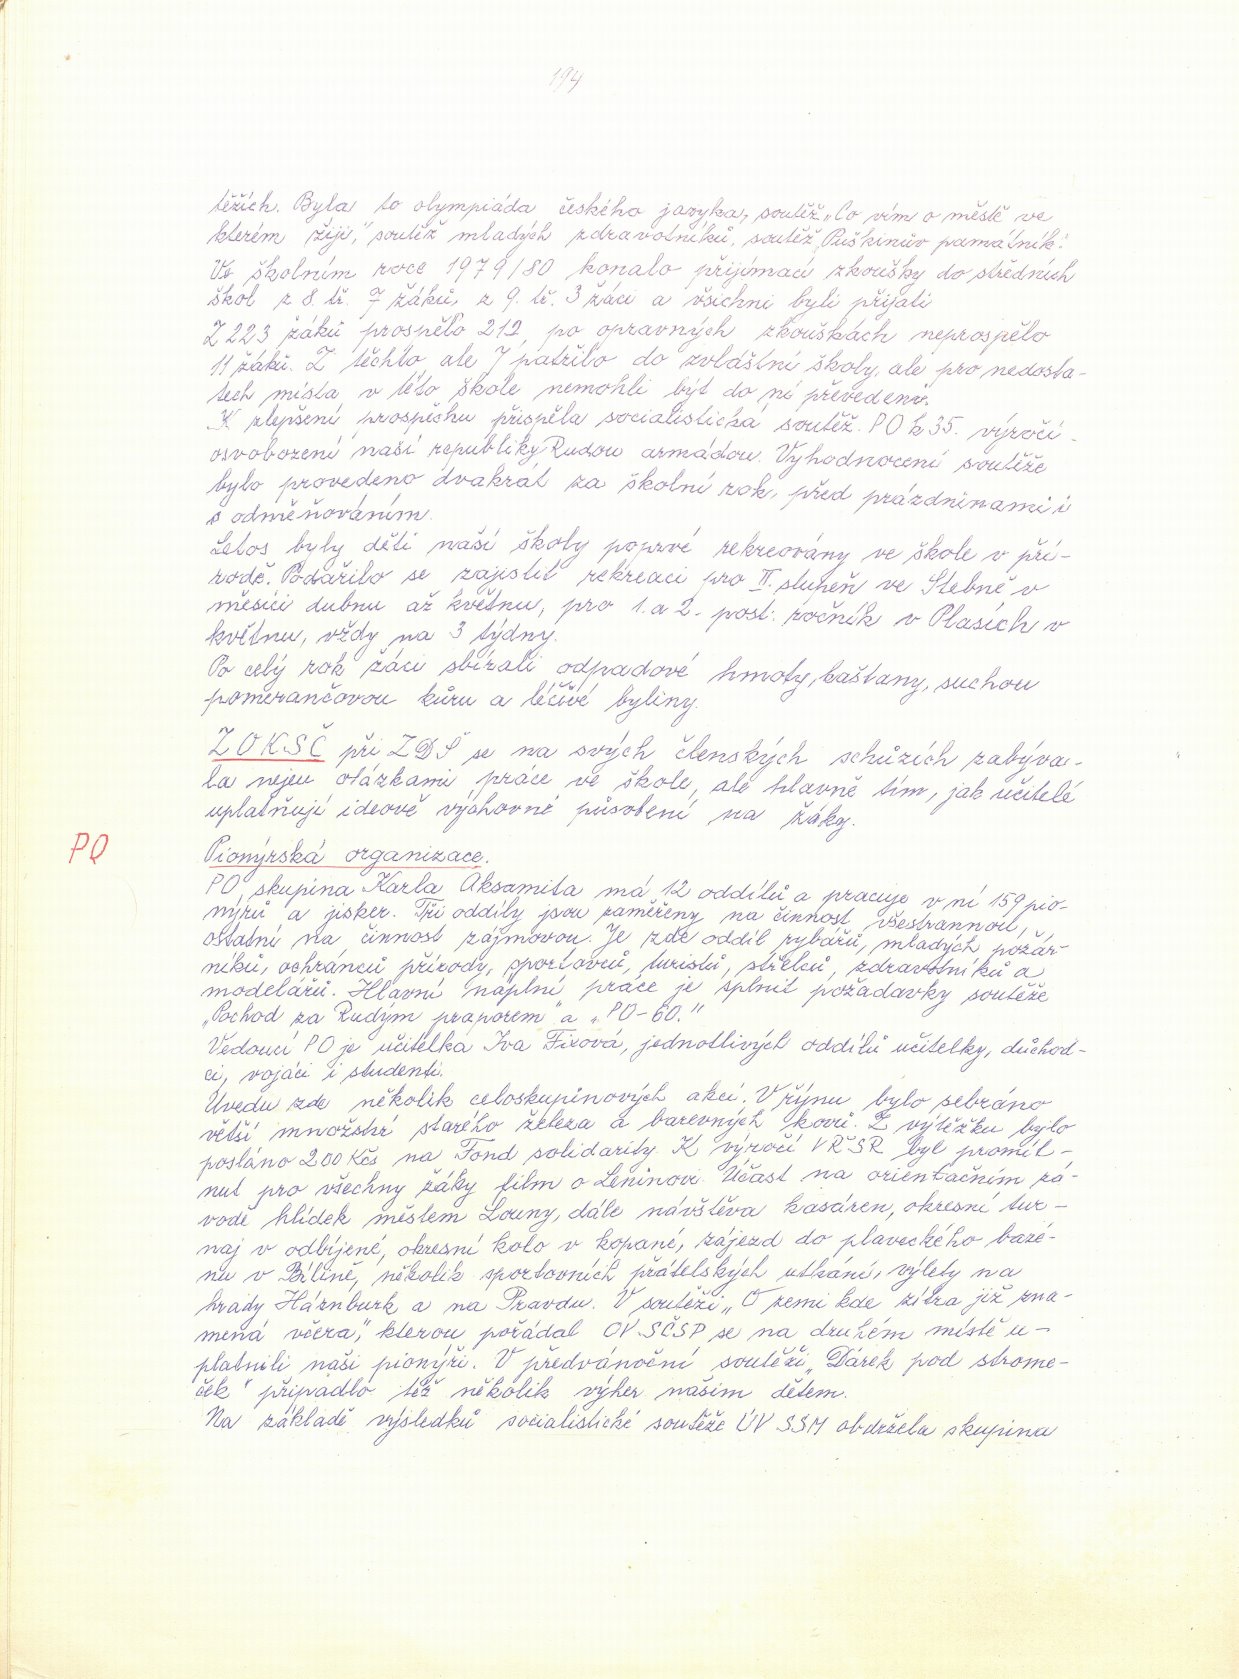 194
těžích. Byla to olympiáda českého jazyka, soutěž „Co vím o městě ve
kterém žiji," soutěž mladých zdravotníků, soutěž „Puškinův památník."
Ve školním roce 1979/80 konalo přijímací zkoušky do středních
škol z 8. tř. 7 žáků, z 9. tř. 3 žáci a všichni byli přijati
Z 223 žáků prospělo 212, po opravných zkouškách neprospělo
11 žáků. Z těchto ale 7 patřilo do zvláštní školy, ale pro nedosta-
tech místa v této škole nemohli být do ní převedeni.
K zlepšení prospěchu přispěla socialistická soutěž PO k 35. výročí
osvobození naší republiky Rudou armádou. Vyhodnocení soutěže
bylo provedeno dvakrát za školní rok, před prázdninami i
s odměňováním.
Letos byly děti naší školy poprvé rekreovány ve škole v pří-
rodě. Podařilo se zajistit rekreaci pro II. stupeň ve Stebně v
měsíci dubnu až květnu, pro 1. a 2. post. ročník v Plasích v
květnu, vždy na 3 týdny.
Po celý rok žáci sbírali odpadové hmoty, kaštany, suchou
pomerančovou kůru a léčivé byliny.
ZOKSČ při ZDŠ se na svých členských schůzích zabýva-
la nejen otázkami práce ve škole, ale hlavně tím, jak učitelé
uplatňují ideově výchovné působení na žáky.
PO
Pionýrská organizace.
PO, skupina Karla Aksamita má 12 oddílů a pracuje v ní 159 pio-
nýrů a jisker. Tři oddíly jsou zaměřeny na činnost všestrannou,
ostatní na činnost zájmovou. Je zde oddíl rybářů, mladých požár-
níků, ochránců přírody, sportovců, turistů, střelců, zdravotníků a
modelářů. Hlavní náplní práce je splnit požadavky soutěže
„Pochod za Rudým praporem" a „PO-60."
Vedoucí PO je učitelka Iva Fixová, jednotlivých oddílů učitelky, důchod-
ci, vojáci i studenti.
Uvedu zde několik celoskupinových akcí. V říjnu bylo sebráno
větší množství starého železa a barevných kovů. Z výtěžku bylo
posláno 200 Kčs na Fond solidarity. K výročí VŘSR byl promít-
nut pro všechny žáky film o Leninovi. Účast na orientačním zá-
vodě hlídek městem Louny, dále návštěva kasáren, okresní tur-
naj v odbíjené, okresní kolo v kopané, zájezd do plaveckého bazé-
nu v Bílině, několik sportovních přátelských utkání, výlety na
hrady Házmburk a na Pravdu. V soutěži „O zemi kde zítra již zna-
mená včera," kterou pořádal OV SČSP se na druhém místě u-
platnili naši pionýři. V předvánoční soutěži „Dárek pod strome-
ček" připadlo též několik výher našim dětem.
Na základě výsledků socialistické soutěže ÚV SSM obdržela skupina